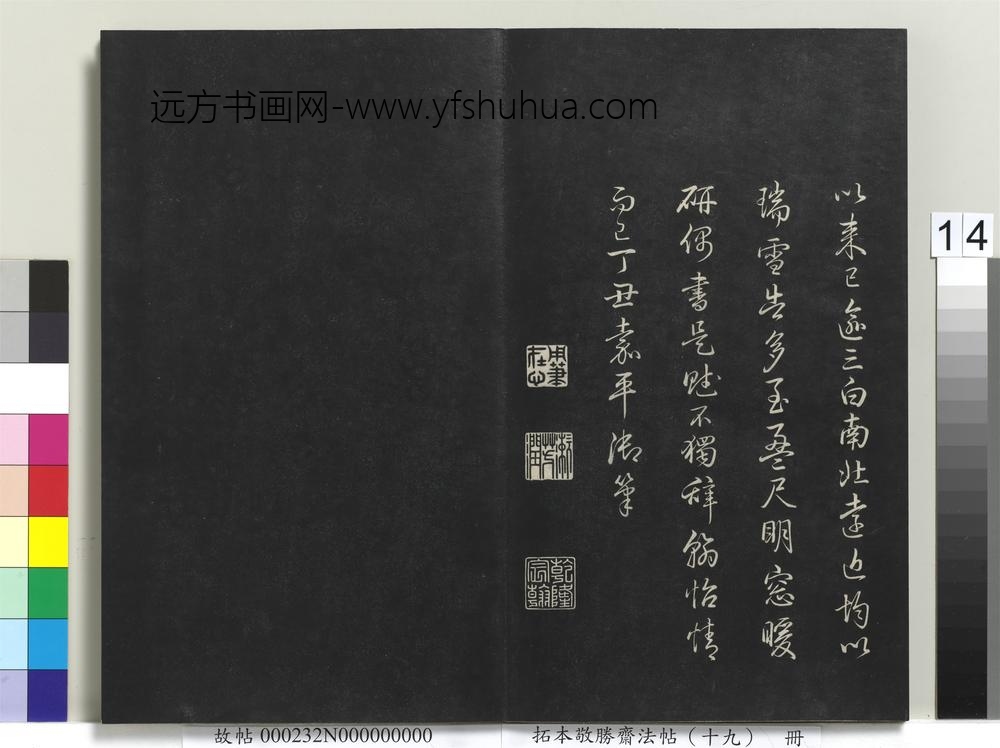 远方书画网-www.yfshuhua.com
以来已逾三白南北遠近均以
瑞雪告多至盈尺明窓暖
研偶書是賦不獨辞翰怡情
而已丁丑嘉平御筆
用筆在心
漱芳潤
乾隆宸翰
14
故帖 000232N000000000
拓本敬勝齋法帖（十九） 冊